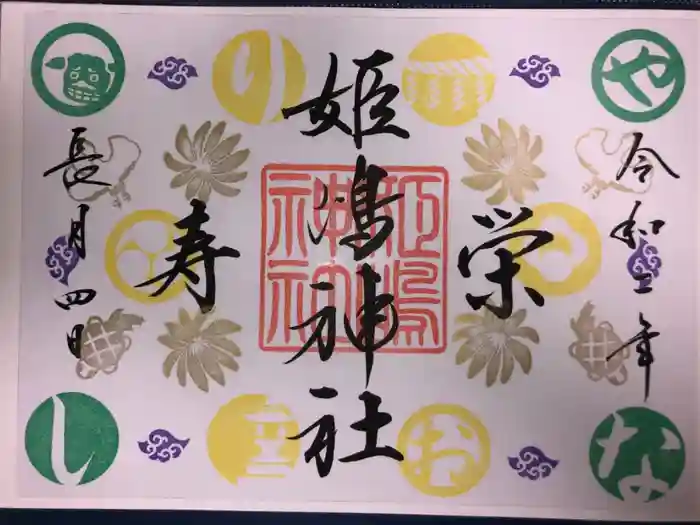 令和二年
栄
姫嶋神社
寿
長月四日
や
り
な
お
し
姫嶋
神社